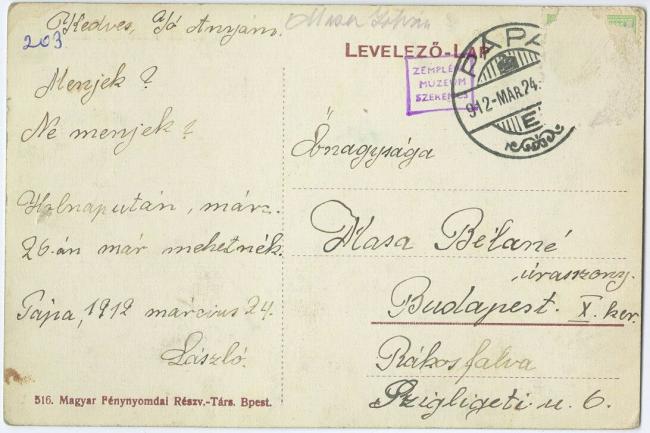 Kedves, Jó Anyám.
203
Menjek?
Ne menjek?
Holnapután, márz.
26-án már mehetnék.
Pápa, 1912 március 24.
László.
516. Magyar Fénynyomdai Részv.-Társ. Bpest.
Masa István
LEVELEZŐ-LAP
ZEMPLÉN
MÚZEUM
SZERENCS
PÁPA
912-MÁR.24.
E
Őnagysága
Masa Béláné
úraszony.
Budapest. X. ker.
Rákosfalva
Szigligeti u. 6.